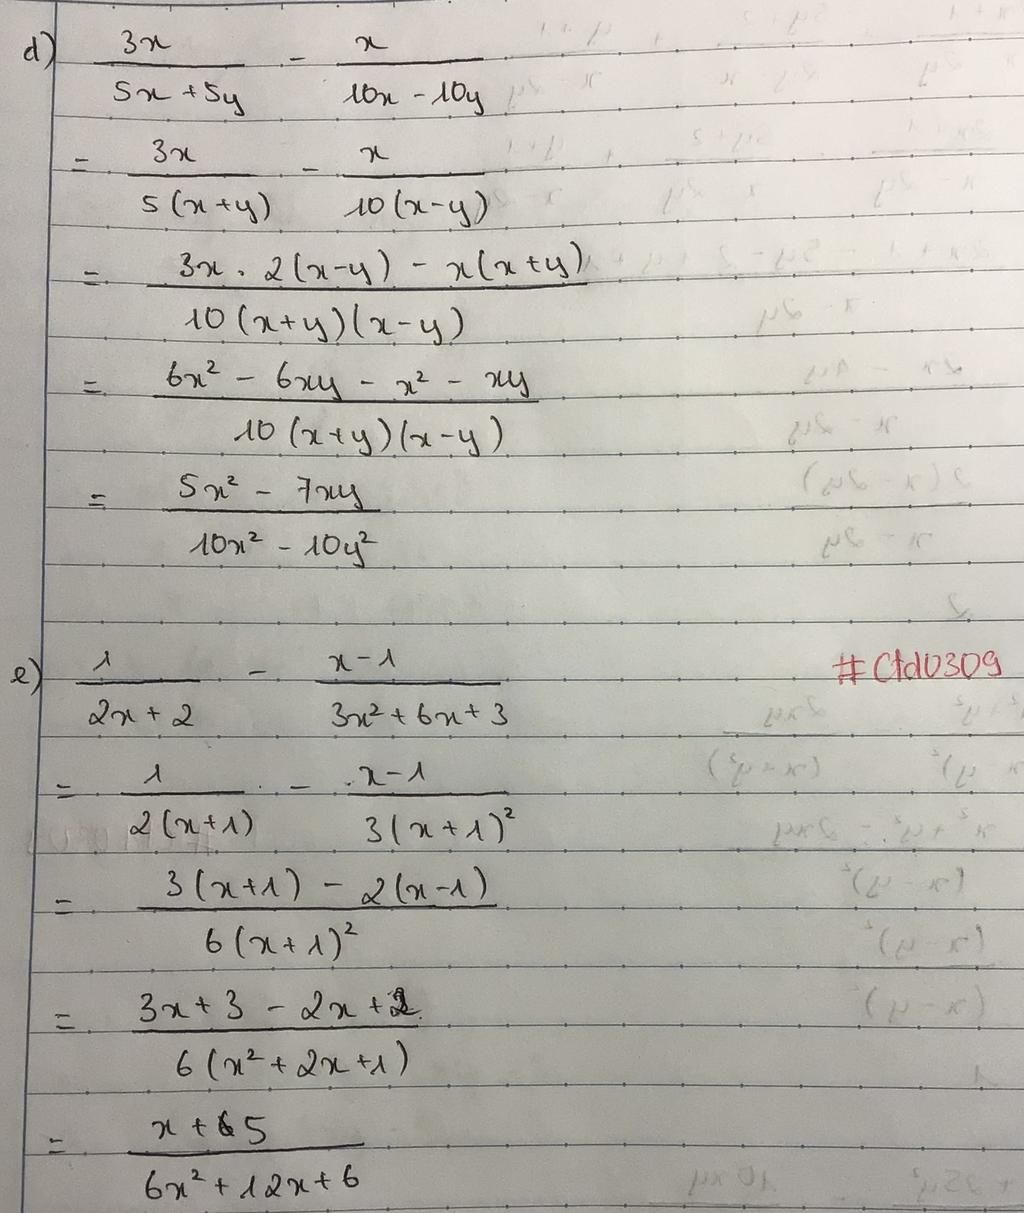 d) 3x/(5x+5y) - x/(10x-10y)
= 3x/5(x+y) - x/10(x-y)
= (3x . 2(x-y) - x(x+y))/10(x+y)(x-y)
= (6x² - 6xy - x² - xy)/10(x+y)(x-y)
= (5x² - 7xy)/(10x² - 10y²)
e) 1/(2x+2) - (x-1)/(3x²+6x+3)
#Ctd0309
= 1/2(x+1) - (x-1)/3(x+1)²
= (3(x+1) - 2(x-1))/6(x+1)²
= (3x+3 - 2x+2)/6(x²+2x+1)
= (x+5)/(6x²+12x+6)